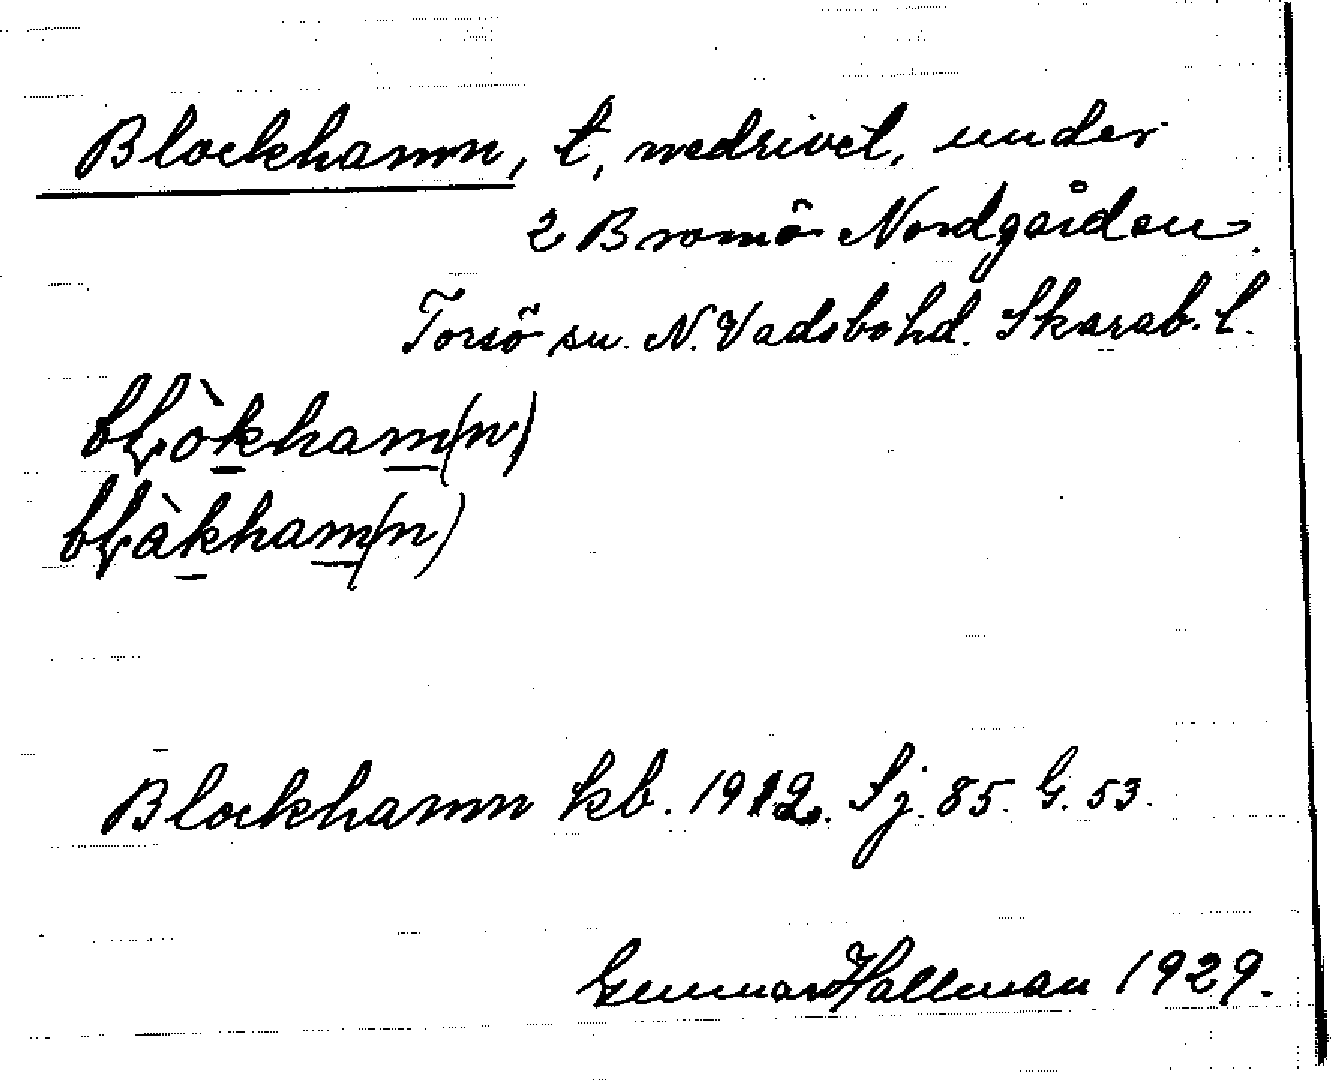 Blockhamn, t, nedrivet, under
2 Bromö Nordgården.
Torsö sn. N. Vadsbo hd. Skarab. l.
bɫòkham(n)
bɫàkham(n)
Blockhamn kb. 1912. Sj. 85. G. 53.
Gunnar Hallman 1929.